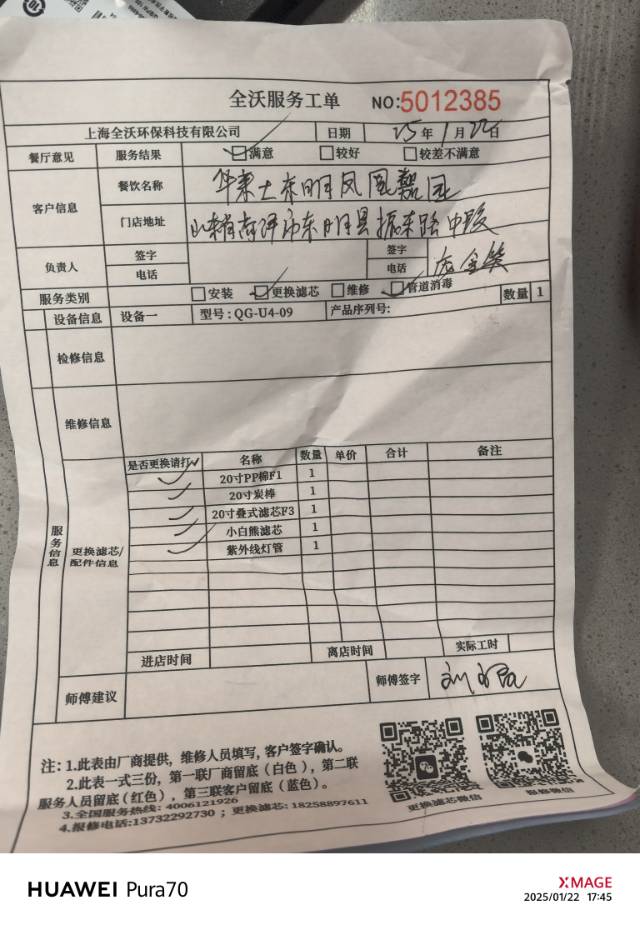 全沃服务工单 NO:5012385
上海全沃环保科技有限公司 日期 25年1月22日
餐厅意见 服务结果 满意 较好 较差不满意
客户信息 餐饮名称 华莱士东明凤凰
门店地址 山东省菏泽市东明县振东路中段
负责人 签字 签字
电话 电话
服务类别 安装 更换滤芯 维修 管道消毒
设备信息 设备一 型号:QG-U4-09 产品序列号: 数量 1
检修信息
维修信息
服务信息
更换滤芯/配件信息
是否更换请打✓ 名称 数量 单价 合计 备注
✓ 20寸PP棉F1 1
✓ 20寸炭棒 1
✓ 20寸叠式滤芯F3 1
✓ 小白熊滤芯 1
✓ 紫外线灯管 1
进店时间 离店时间 实际工时
师傅建议 师傅签字
注:1.此表由厂商提供,维修人员填写,客户签字确认。
2.此表一式三份,第一联厂商留底(白色),第二联
服务人员留底(红色),第三联客户留底(蓝色)。
3.全国服务热线: 4006121926
4.报修电话:13732292730 ; 更换滤芯: 18258897611
更换滤芯微信 报修微信
HUAWEI Pura70
XMAGE
2025/01/22 17:45